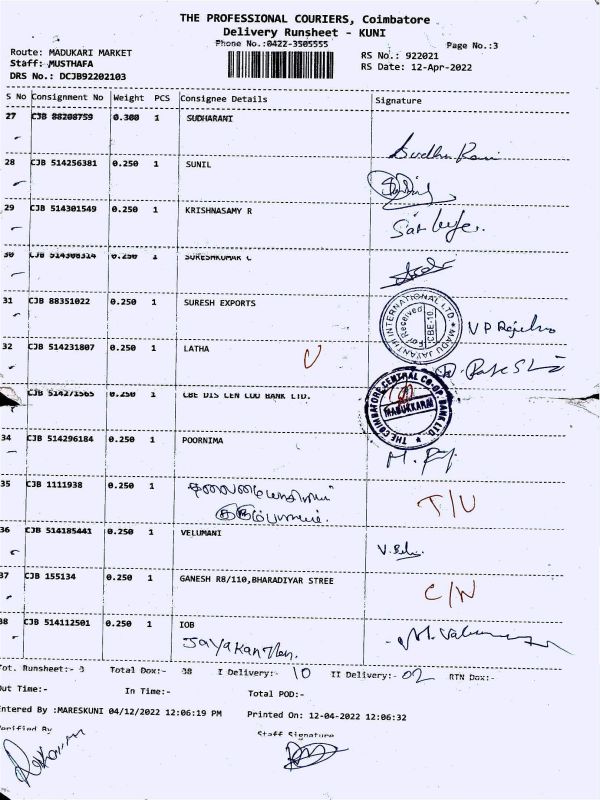 THE PROFESSIONAL COURIERS, Coimbatore
Delivery Runsheet - KUNI
Phone No.:0422-3505555
Page No.:3
Route: MADUKARI MARKET
RS No.: 922021
Staff: MUSTHAFA
RS Date: 12-Apr-2022
DRS No.: DCJB92202103
S No Consignment No Weight PCS Consignee Details Signature
27 CJB 88208759 0.300 1 SUDHARANI
28 CJB 514256381 0.250 1 SUNIL
29 CJB 514301549 0.250 1 KRISHNASAMY R
30 CJB 514308314 0.250 1 SURESHKUMAR C
31 CJB 88351022 0.250 1 SURESH EXPORTS
For Received CBE-10
32 CJB 514231807 0.250 1 LATHA
CJB 514271565 0.250 1 CBE DIS CEN COO BANK LTD.
THE COIMBATORE CENTRAL CO-OP. BANK LTD.
MADUKKARAI
34 CJB 514296184 0.250 1 POORNIMA
35 CJB 1111938 0.250 1
T/U
36 CJB 514185441 0.250 1 VELUMANI
37 CJB 155134 0.250 1 GANESH R8/110,BHARADIYAR STREE
C/N
38 CJB 514112501 0.250 1 IOB
Jayakanthan.
Tot. Runsheet:- 3 Total Dox:- 38 I Delivery:- 10 II Delivery:- 02 RTN Dox:-
Out Time:- In Time:- Total POD:-
Entered By :MARESKUNI 04/12/2022 12:06:19 PM Printed On: 12-04-2022 12:06:32
Verified By Staff Signature